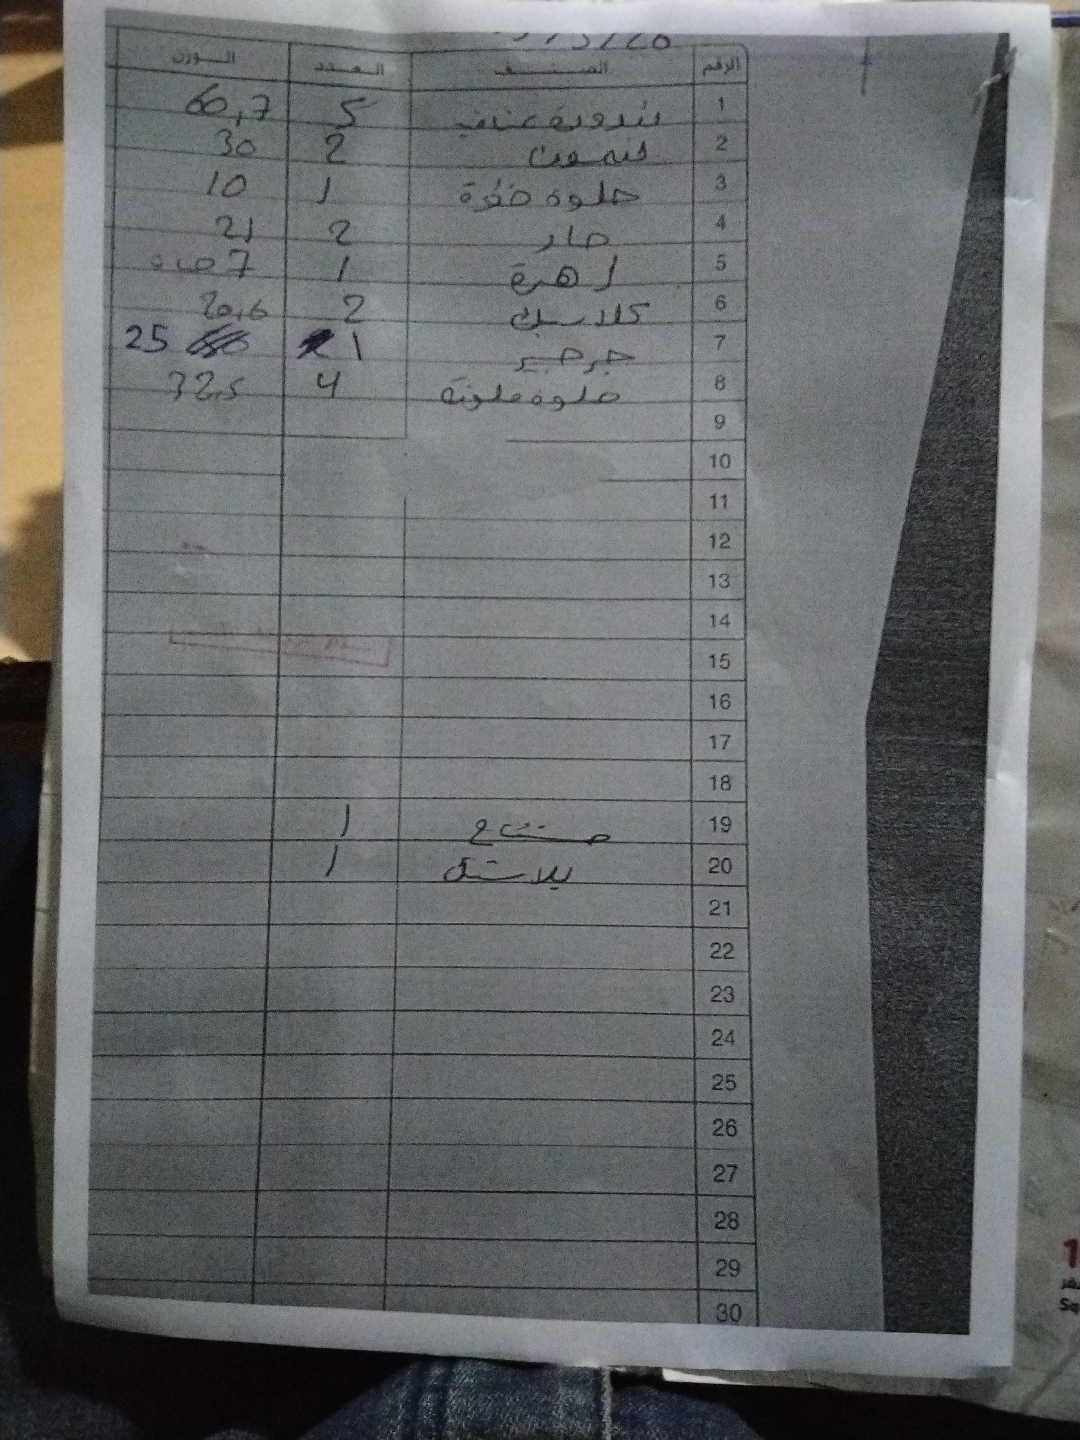 الرقم الصنف العدد الوزن
1 بندورة عناقيد 5 60,7
2 ليمون 2 30
3 حلوة خضرة 1 10
4 حار 2 21
5 زهرة 1 7 حبه
6 كلاسيك 2 20,6
7 جرجير 1 25
8 حلوة ملونة 4 32,5
9
10
11
12
13
14
15
16
17
18
19 1
20 بلاستك 1
21
22
23
24
25
26
27
28
29
30
1